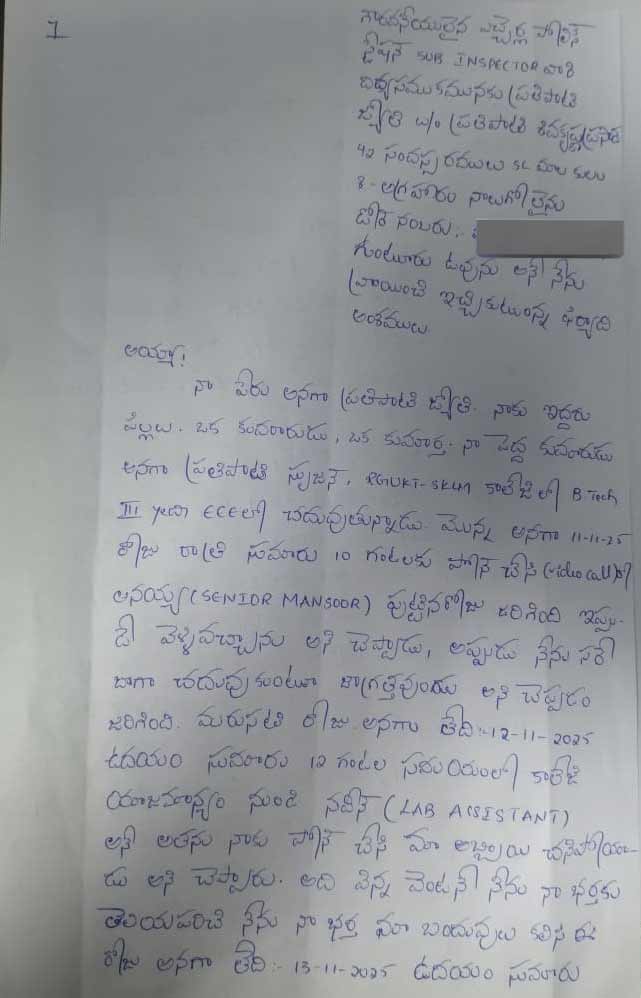 1
గౌరవనీయులైన ఎచ్చెర్ల పోలీస్
స్టేషన్ SUB INSPECTOR వారి
దివ్యసముకమునకు ప్రతిపాటి
జ్యోతి w/o ప్రతిపాటి శివకృష్ణప్రసాద్
42 సంవస్సరములు SC మాల కులం
8- అగ్రహారం నాలుగో లైను
డోర్ నంబరు:-
గుంటూరు టవును అనే నేను
వ్రాయించి ఇచ్చికుటున్న ఫిర్యాది
అంశములు.
అయ్యా!
నా పేరు అనగా ప్రతిపాటి జ్యోతి. నాకు ఇద్దరు
పిల్లలు. ఒక కుమారుడు, ఒక కుమార్తె. నా పెద్ద కుమారుడు
అనగా ప్రతిపాటి సృజన్, RGUKT-SKLM కాలేజి లో B Tech
III year ECEలో చదువుతున్నాడు. మొన్న అనగా 11-11-25
రోజు రాత్రి సుమారు 10 గంటలకు ఫోన్ చేసి (video call)లో
అనయ్య (SENIOR MANSOOR) పుట్టినరోజు జరిగింది ఇప్పు-
డే వెళ్ళివచ్చాను అని చెప్పాడు, అప్పుడు నేను సరే
బాగా చదువుకుంటూ జాగ్రత్తవుండు అని చెప్పడం
జరిగింది. మరుసటి రోజు అనగా తేది:-12-11-2025
ఉదయం సుమారు 12 గంటల సమయంలో కాలేజి
యాజమాన్యం నుండి నవీన్ (LAB ASSISTANT)
అనే అతను నాకు ఫోన్ చేసి మా అబ్బాయి చనిపోయా-
డు అని చెప్పారు. అది విన్న వెంటనే నేను నా భర్తకు
తెలియపరిచి నేను నా భర్త మా బందువులు కలిసి ఈ
రోజు అనగా తేది:- 13-11-2025 ఉదయం సుమారు